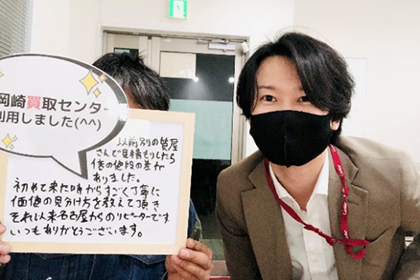 岡崎買取センター
利用しました(^^)
以前別の質屋
さんで見積もりしたら
倍の値段の差が
ありました。
初めて来た時からすごく丁寧に
価値の見分け方を教えて頂き
それ以来名古屋からのリピーターです
いつもありがとうございます。